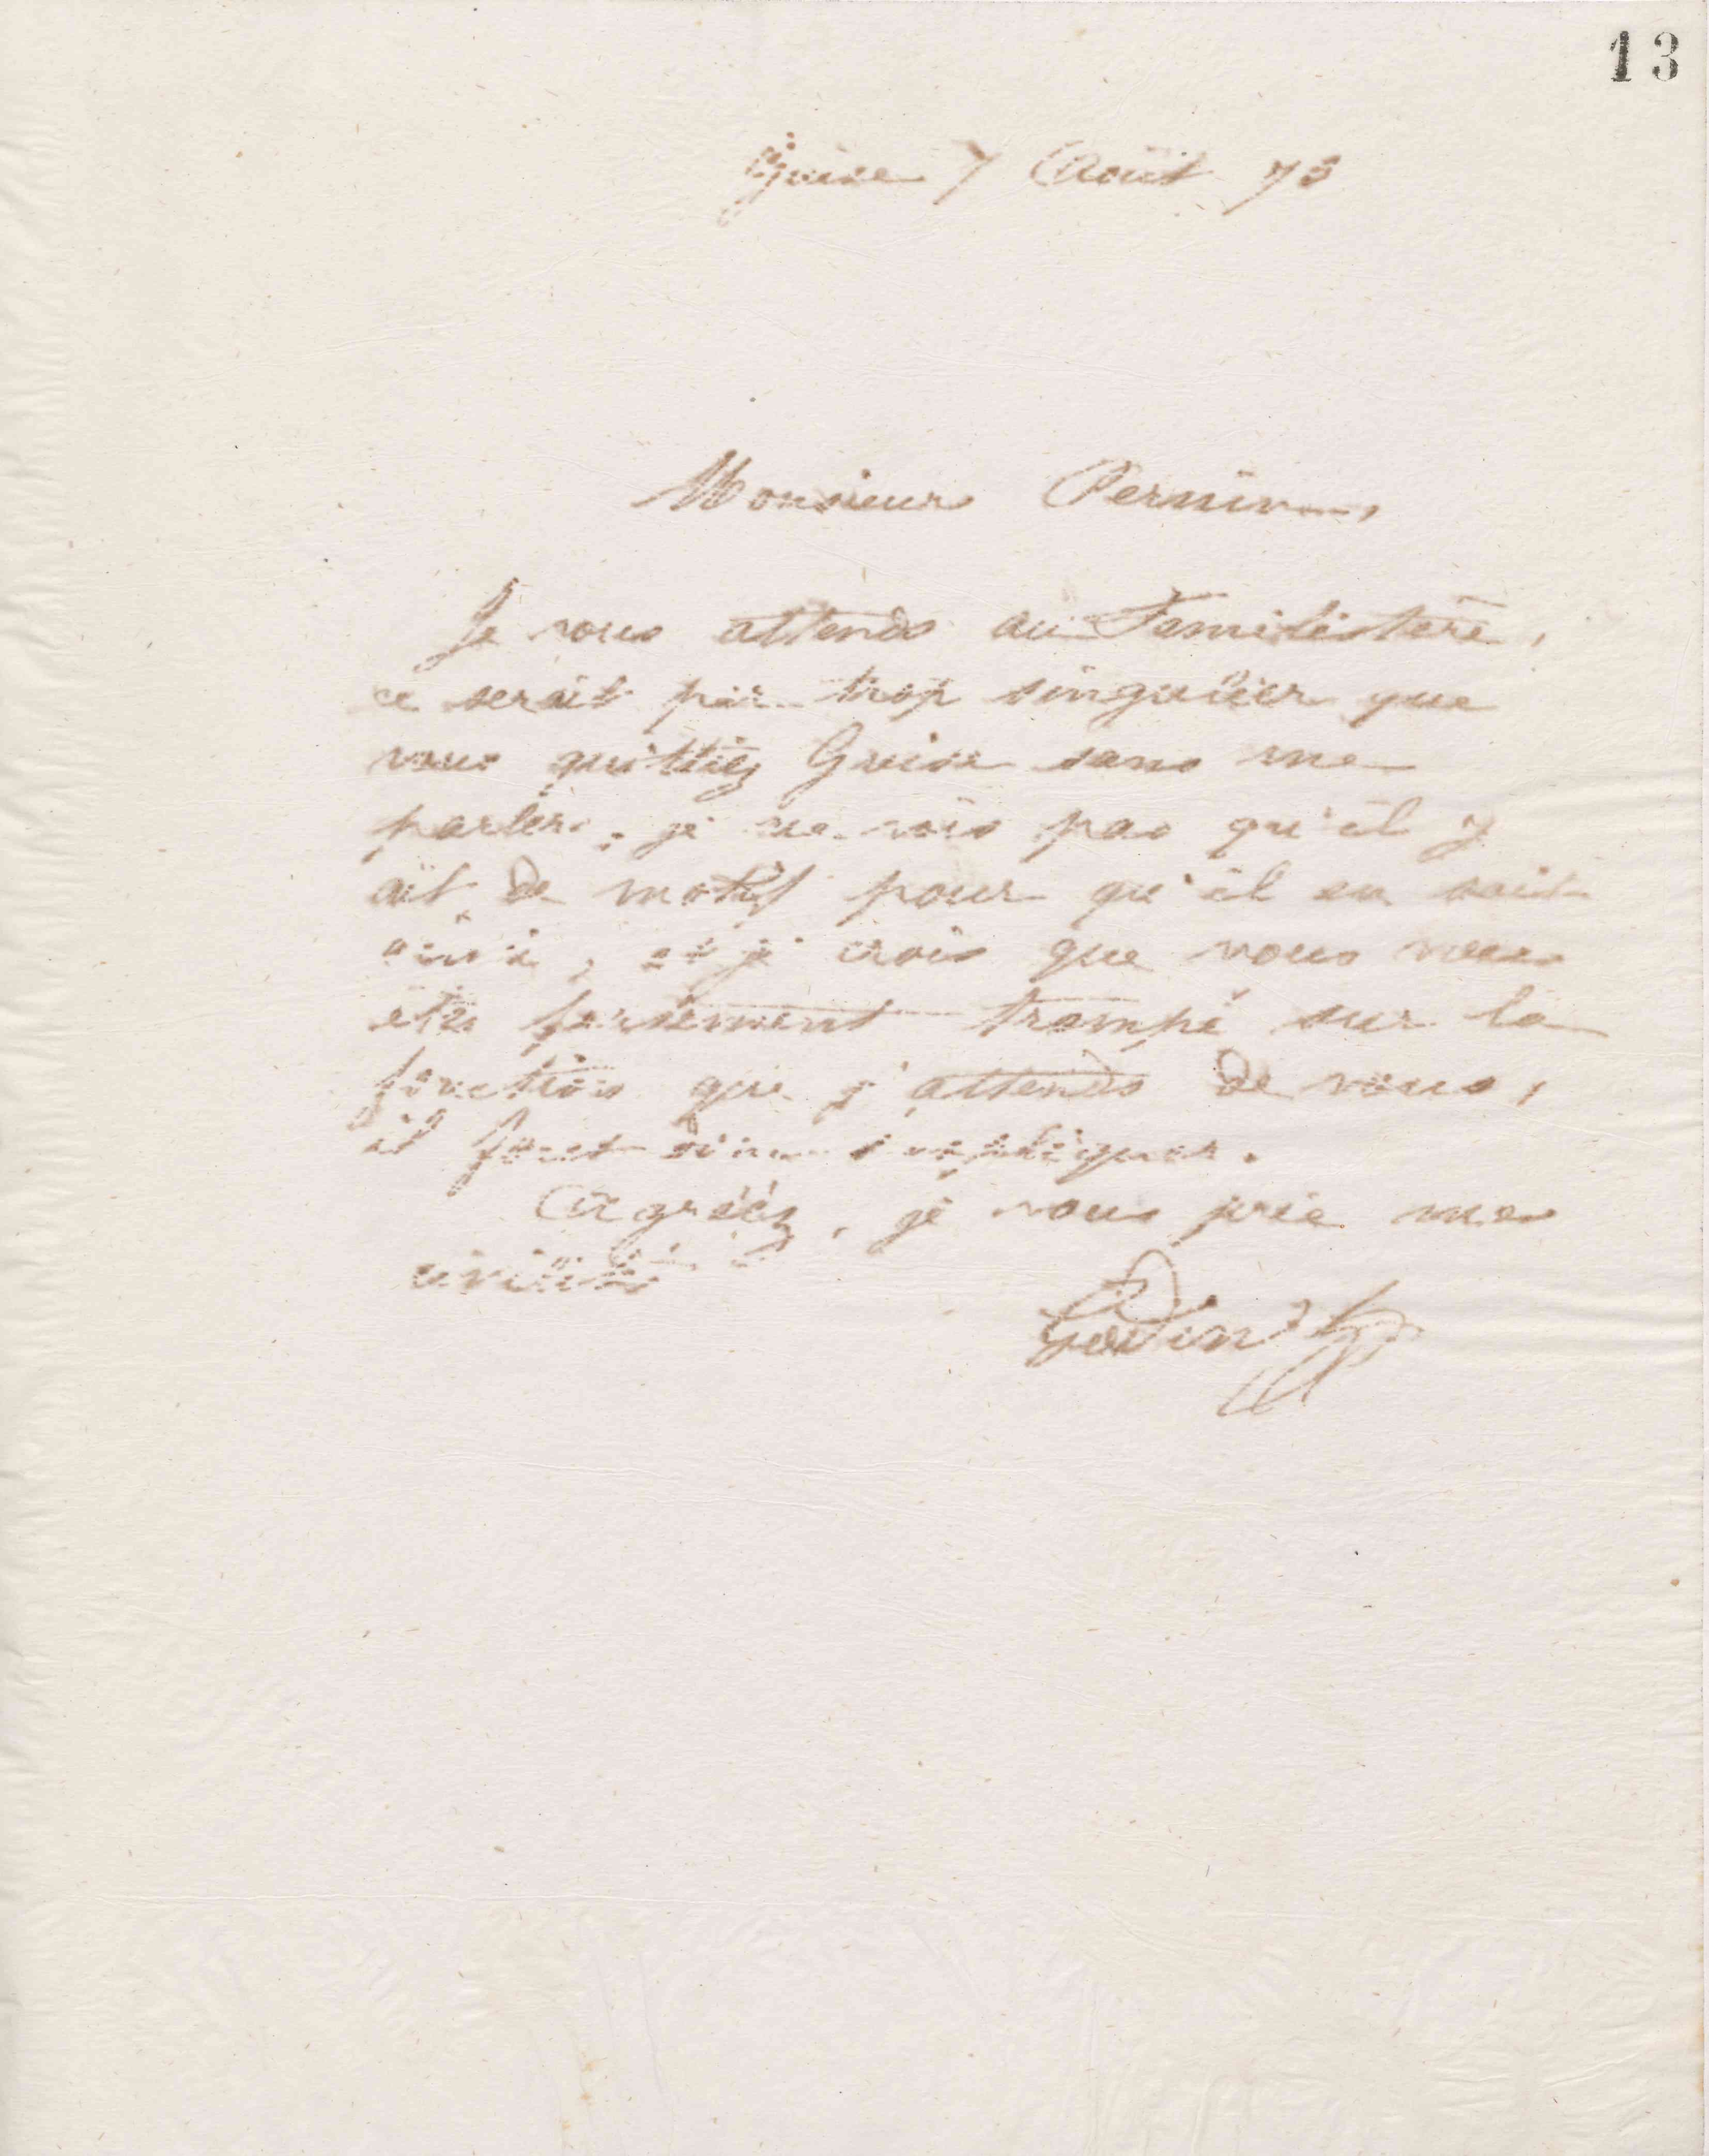 13
Guise 7 Août 73
Monsieur Pernin,
Je vous attends au Familistère,
ce serait par trop singulier que
vous quittiez Guise sans me
parler. je ne vois pas qu'il y
ait de motif pour qu'il en soit
ainsi, et je crois que vous vous
êtes fortement trompé sur la
fonction que j'attends de vous,
il faut donc s'expliquer.
Agréez, je vous prie mes
civilités
Godin